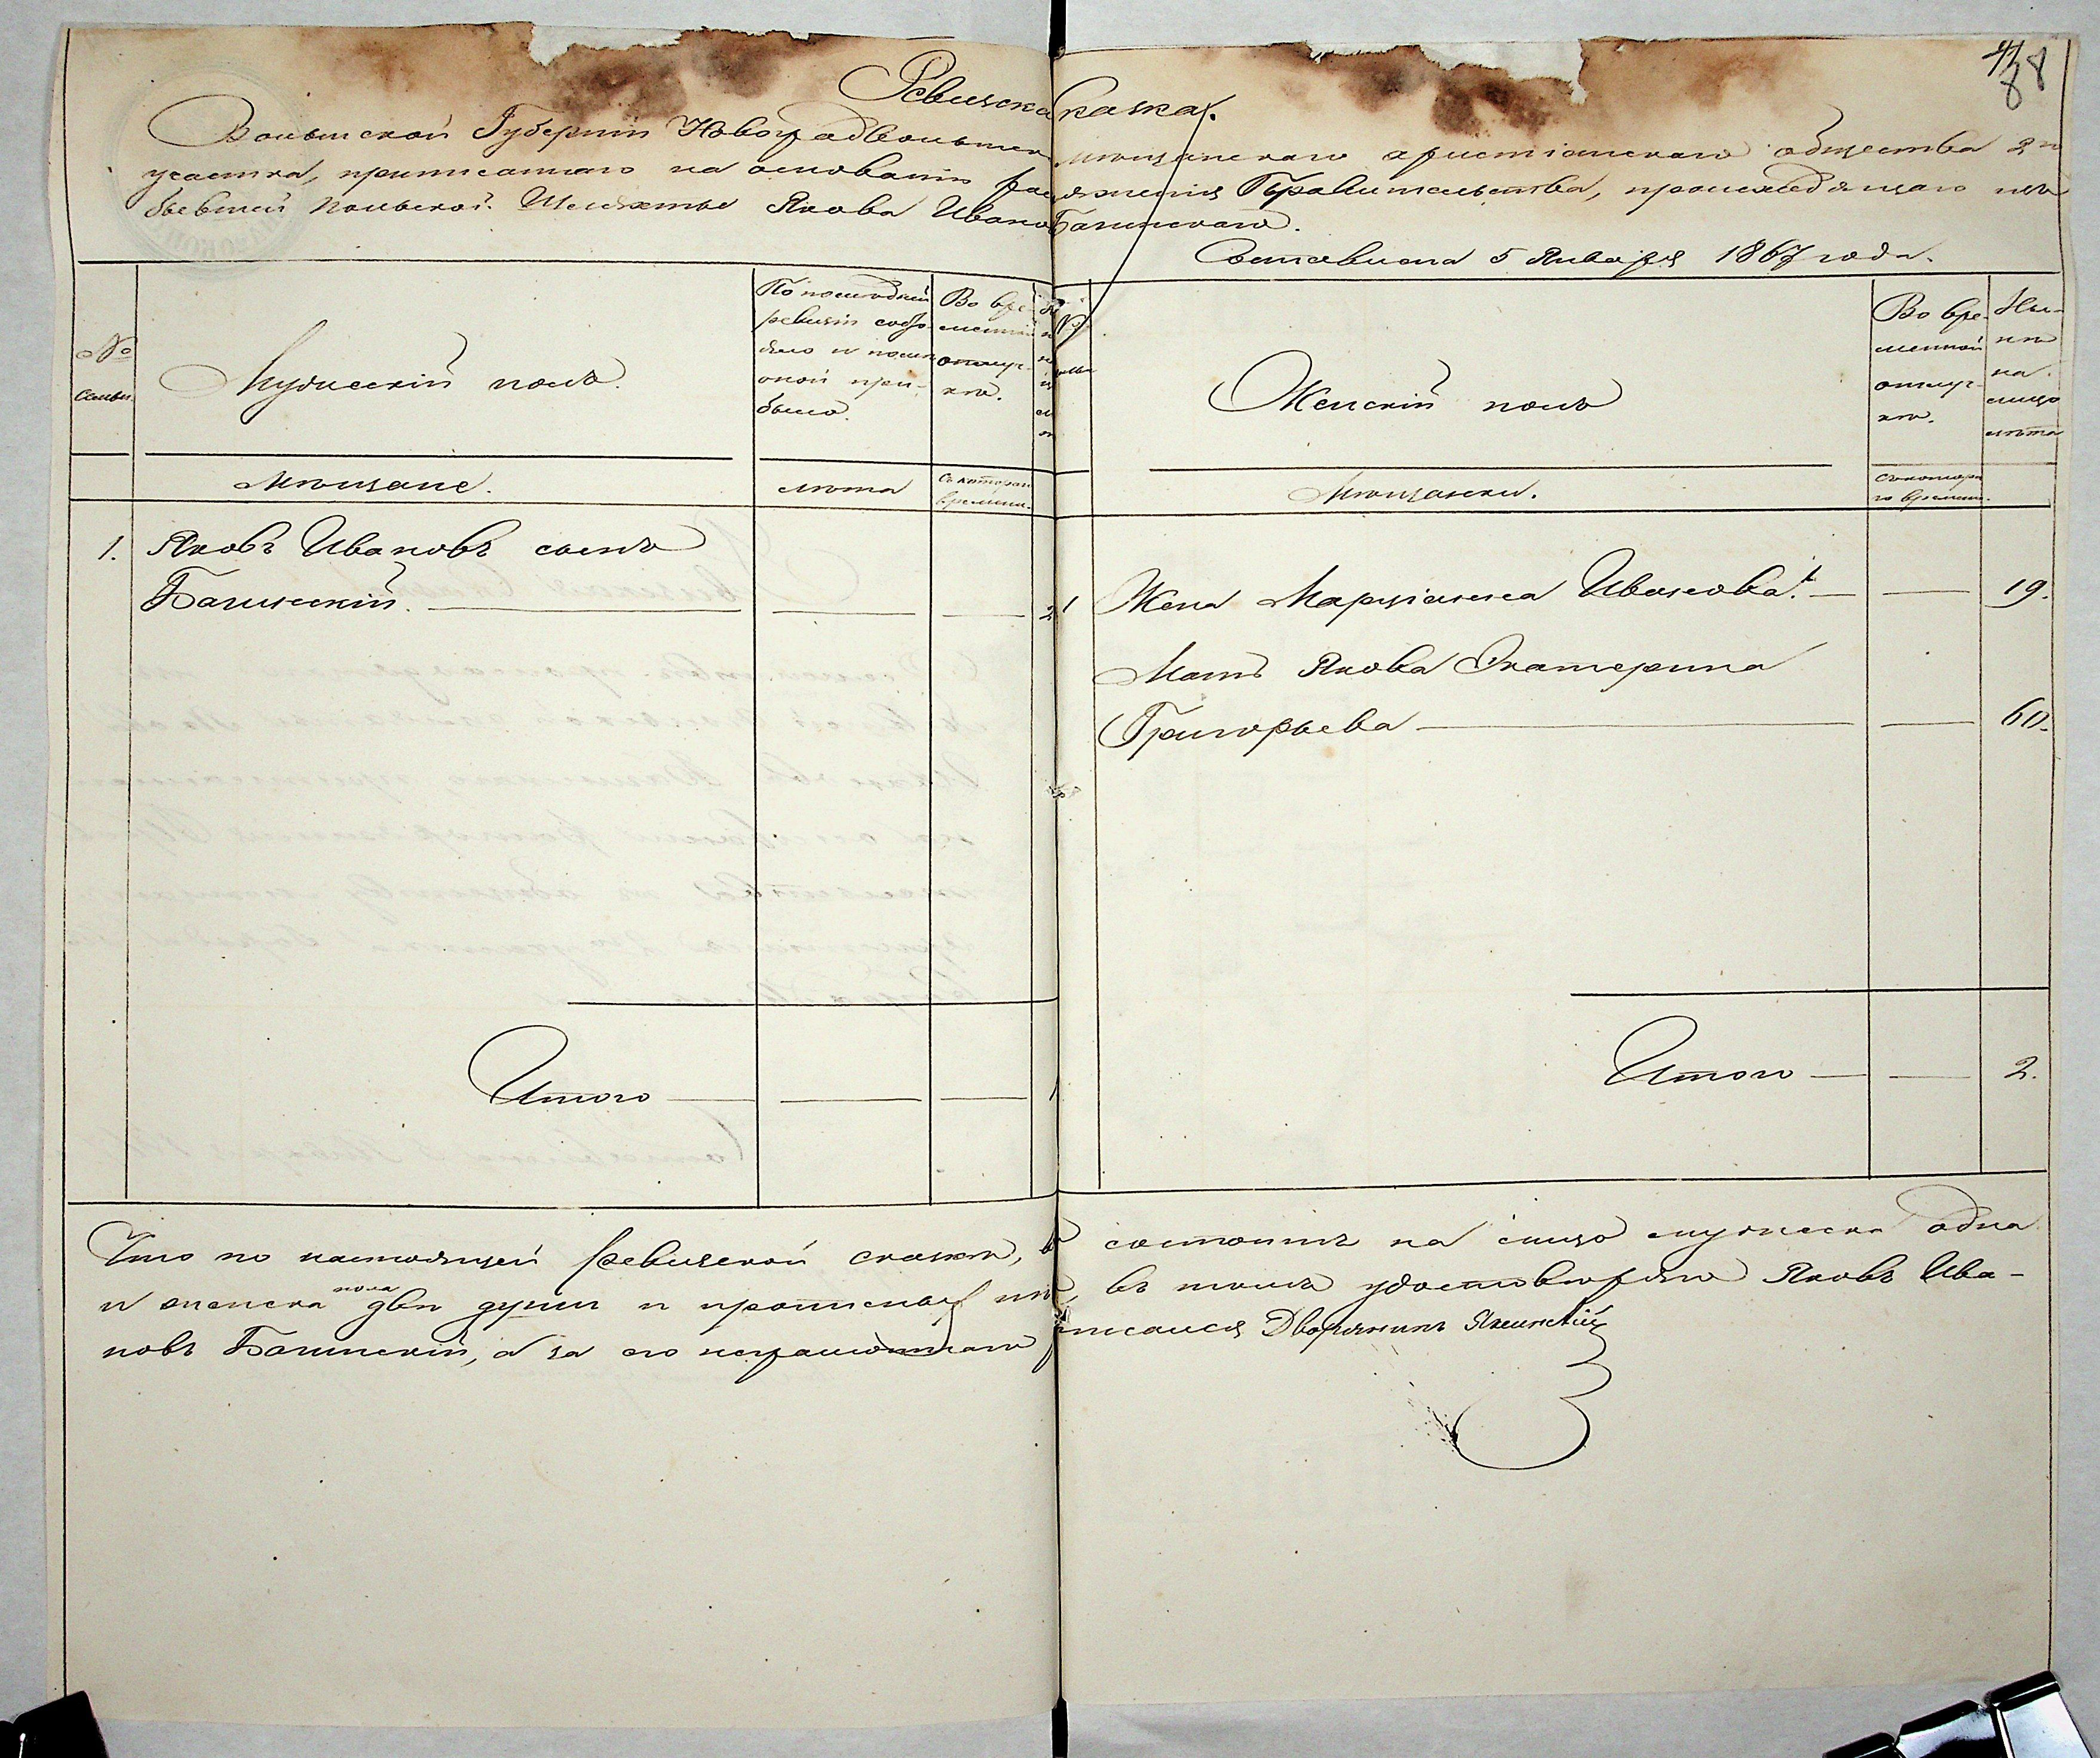 Ревизска сказка.
Волынской Губерніи Новоградволын мѣщанскаго христіанскаго общества 2го
участка, приписаннаго на основаніи рас оженія Правительства, происходящаго изъ
бывшей Польской Шляхты Якова Ивано Багинскаго.
Составлена 5 Января 1867 года.
№ семьи
Мужескій полъ.
По послѣдней
ревизіи состо-
яло и послѣ
оной при-
было.
Во вре-
менной
отлуч-
кѣ.
№
Женскій полъ
Во вре-
менной
отлуч-
кѣ.
Ны-
нѣ
на
лицо
лѣта
Мѣщане.
лѣта
Съ котораго
времени.
Мѣщанки.
Съ котора-
го времени.
1. Яковъ Ивановъ сынъ
Багинскій.
2
1 Жена Марціанна Иванова. 19.
Мать Якова Екатерина
Григорьева 60.
Итого 1
Итого 2.
Что по настоящей ревизской сказкѣ, состоитъ на лицо мужеска одна
и женска пола двѣ души и прописныхъ нѣтъ, въ томъ удостовѣряю Яковъ Ива-
новъ Багинскій, а за его неграмотнаго писался Дворянинъ